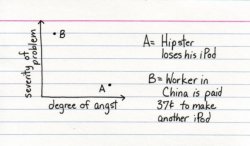 severity of
problem
B
A
degree of angst
A= Hipster
loses his iPod
B= Worker in
China is paid
37¢ to make
another iPod